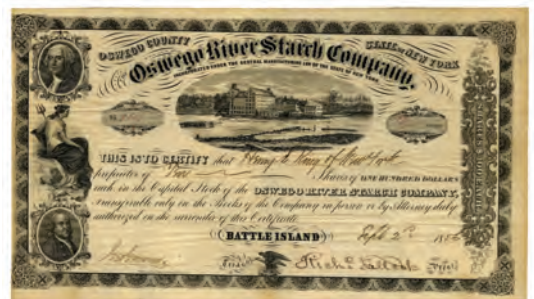 OSWEGO COUNTY STATE OF NEW YORK
Oswego River Starch Company,
INCORPORATED UNDER THE GENERAL MANUFACTURING LAW OF THE STATE OF NEW YORK
THIS IS TO CERTIFY that Henry King of New York
proprietor of Five Shares of ONE HUNDRED DOLLARS
each in the Capital Stock of the OSWEGO RIVER STARCH COMPANY,
transferable only on the Books of the Company in person or by Attorney duly
authorized on the surrender of this Certificate.
BATTLE ISLAND Sept 2d